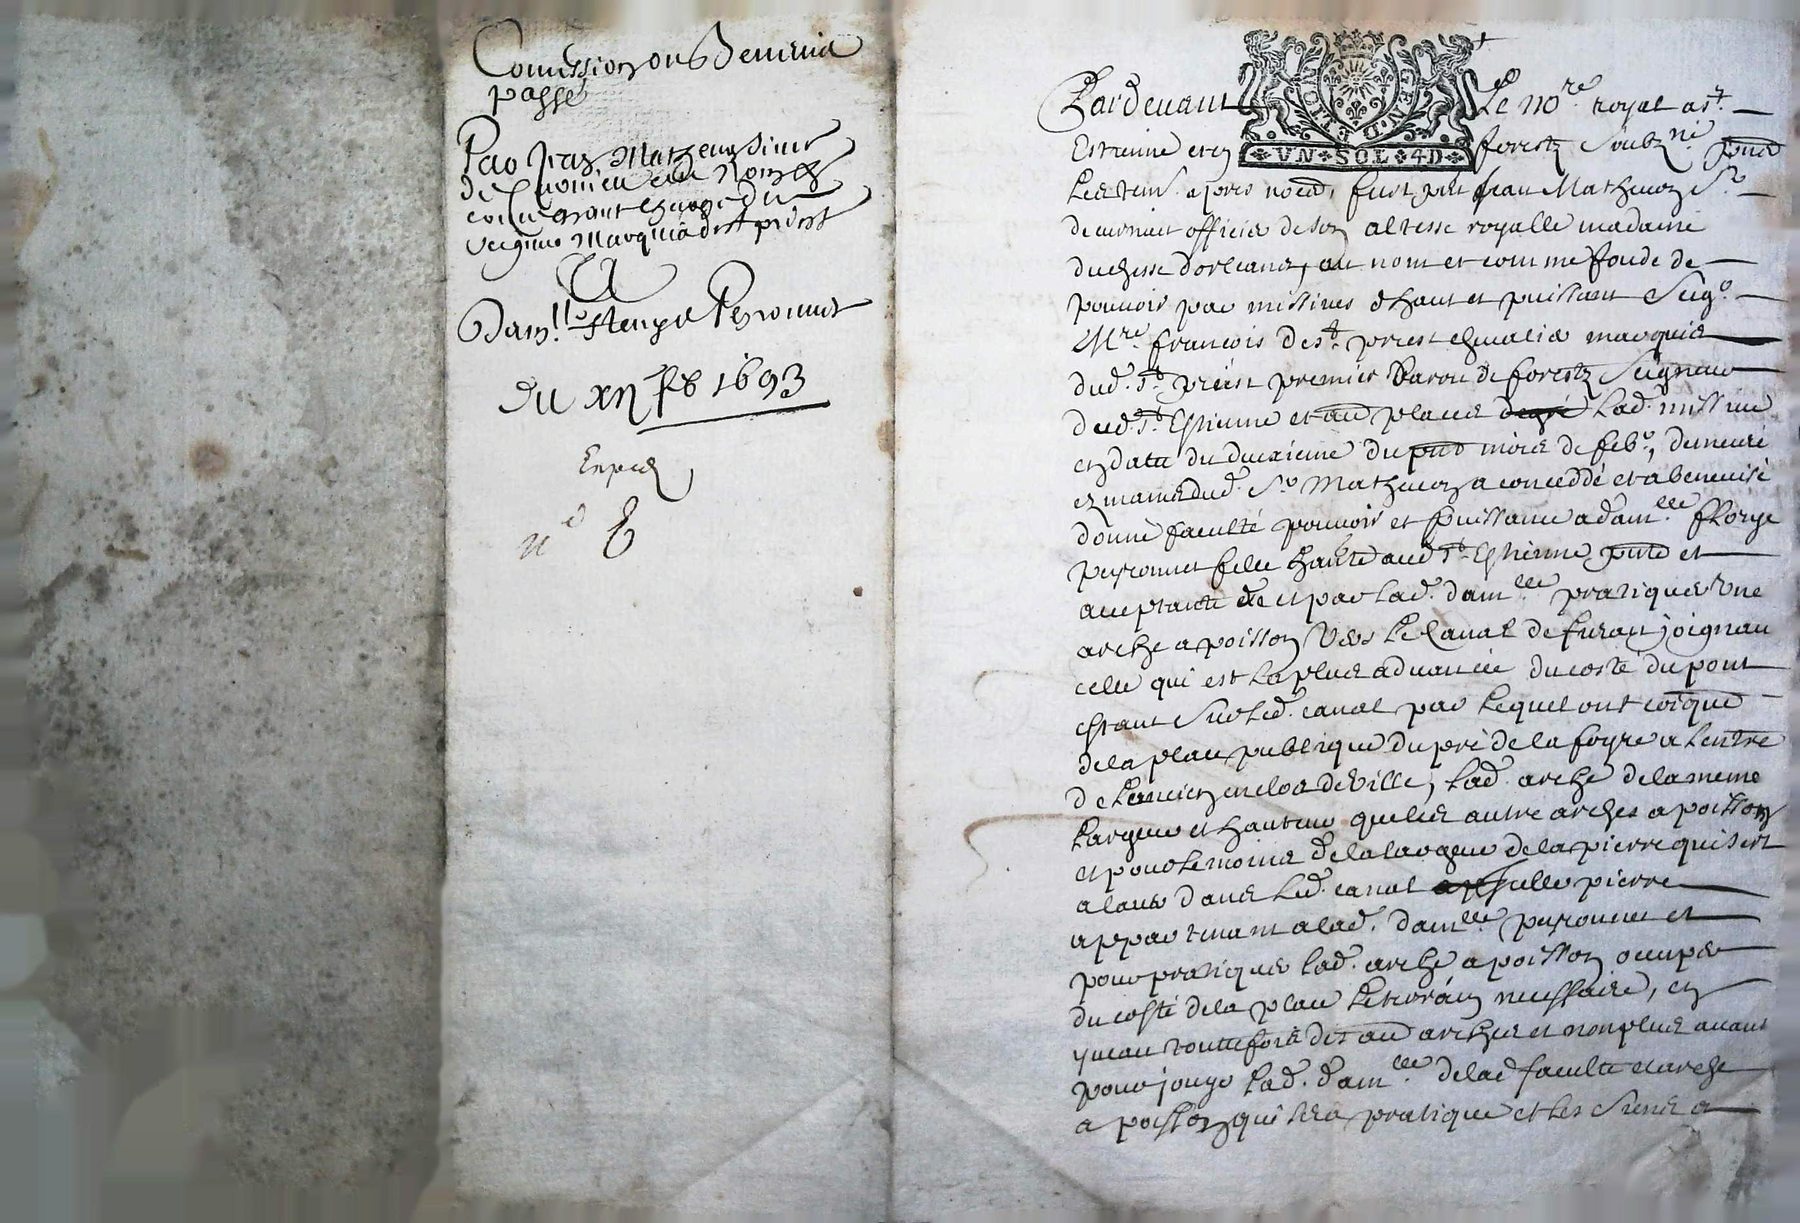 Comission ou Benevis
passé
Par Jean Matheron Sieur
de Curnieu au Nom &
comme ayant charge du
seigneur Marquis de St priest
A
Dam.lle fleurye Peyronnet
Du xij feb 1693
Exped
n E
Pardevant Le no.re royal a st
GEN.D EMON
VN SOL 4D
Estienne en forestz Soubz.né pnt
Les tesm. apres nom, fust pnt Jean Matheron Sr
de curnieu officier de son altesse royalle madame
duchesse dorleans, au nom et comme fondé de
pouvoir par missives d haut et puissant Seigr
M.re francois de st priest chevalier marquis
dud. st priest premier Baron de forestz Seigneur
dud. st Estienne et au places Lad. missive
en date du deuxieme du pnt mois de feb., demeuré
ez mains dud. Sr Matheron a conceddé et abenevisé
donné faculté pouvoir et puissance a dam.lle fleurye
peyronnet fille aud st Estienne pnte et
acceptante et par Lad. dam.lle pratiquer Une
arche a poisson Vers Le Canal de furan joignan
celle qui est La plus advancée du costé du pont
estant Sur Led. canal par Lequel ont
de la place publique du pré de la foyre a Lentre
de Lancien enclos de Ville, Lad. arche de la meme
Largeur et hauteur que les autre arches a poisson
et pour le moins de la largeur de la pierre qui sert
a laver dans Led. canal icelle pierre
appartenant a lad. dam.lle peyronnet et
pour pratiquer Lad. arche a poisson occuper
du costé de la place Le terrain necessaire, en
yveau touttefois des au arches et non plus avant
pour jouyr Lad. dam.lle de lad faculté et arche
a poisson qui sera pratiqué et les Siens a